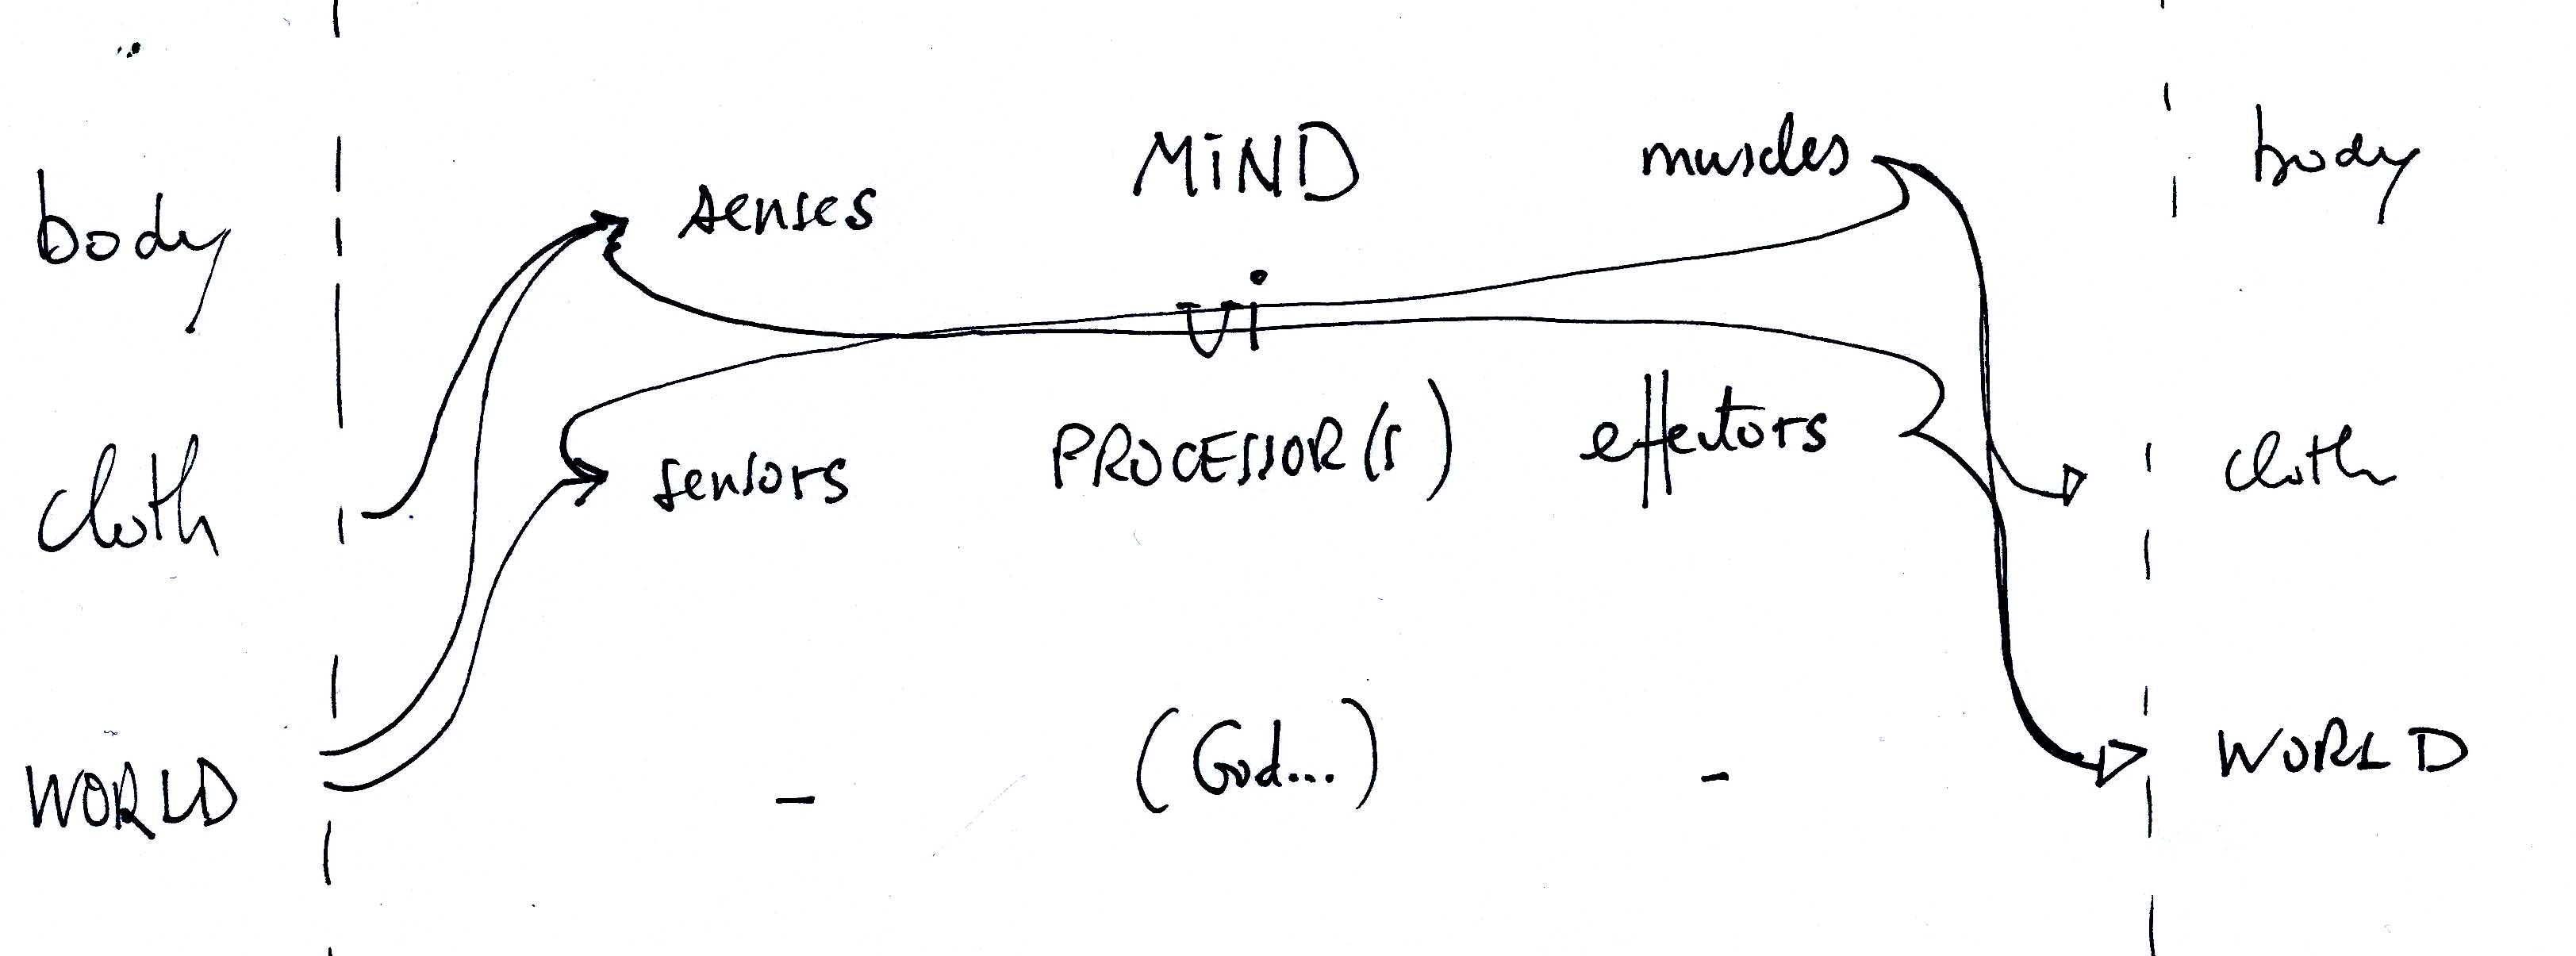 body senses MiND muscles body
ui
cloth sensors PROCESSOR(S) effectors cloth
WORLD - (God...) - WORLD